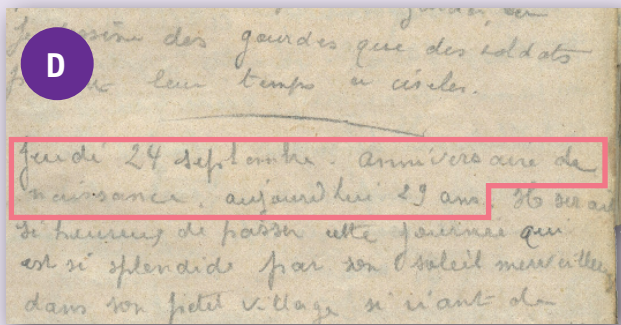 D
dessine des gourdes que des soldats
leur temps a ciseler.
Jeudi 24 septembre. Anniversaire de
naissance. aujourd'hui 29 ans. Il serait
si heureux de passer cette journée qui
est si splendide par son soleil merveilleux
dans son petit village si riant de